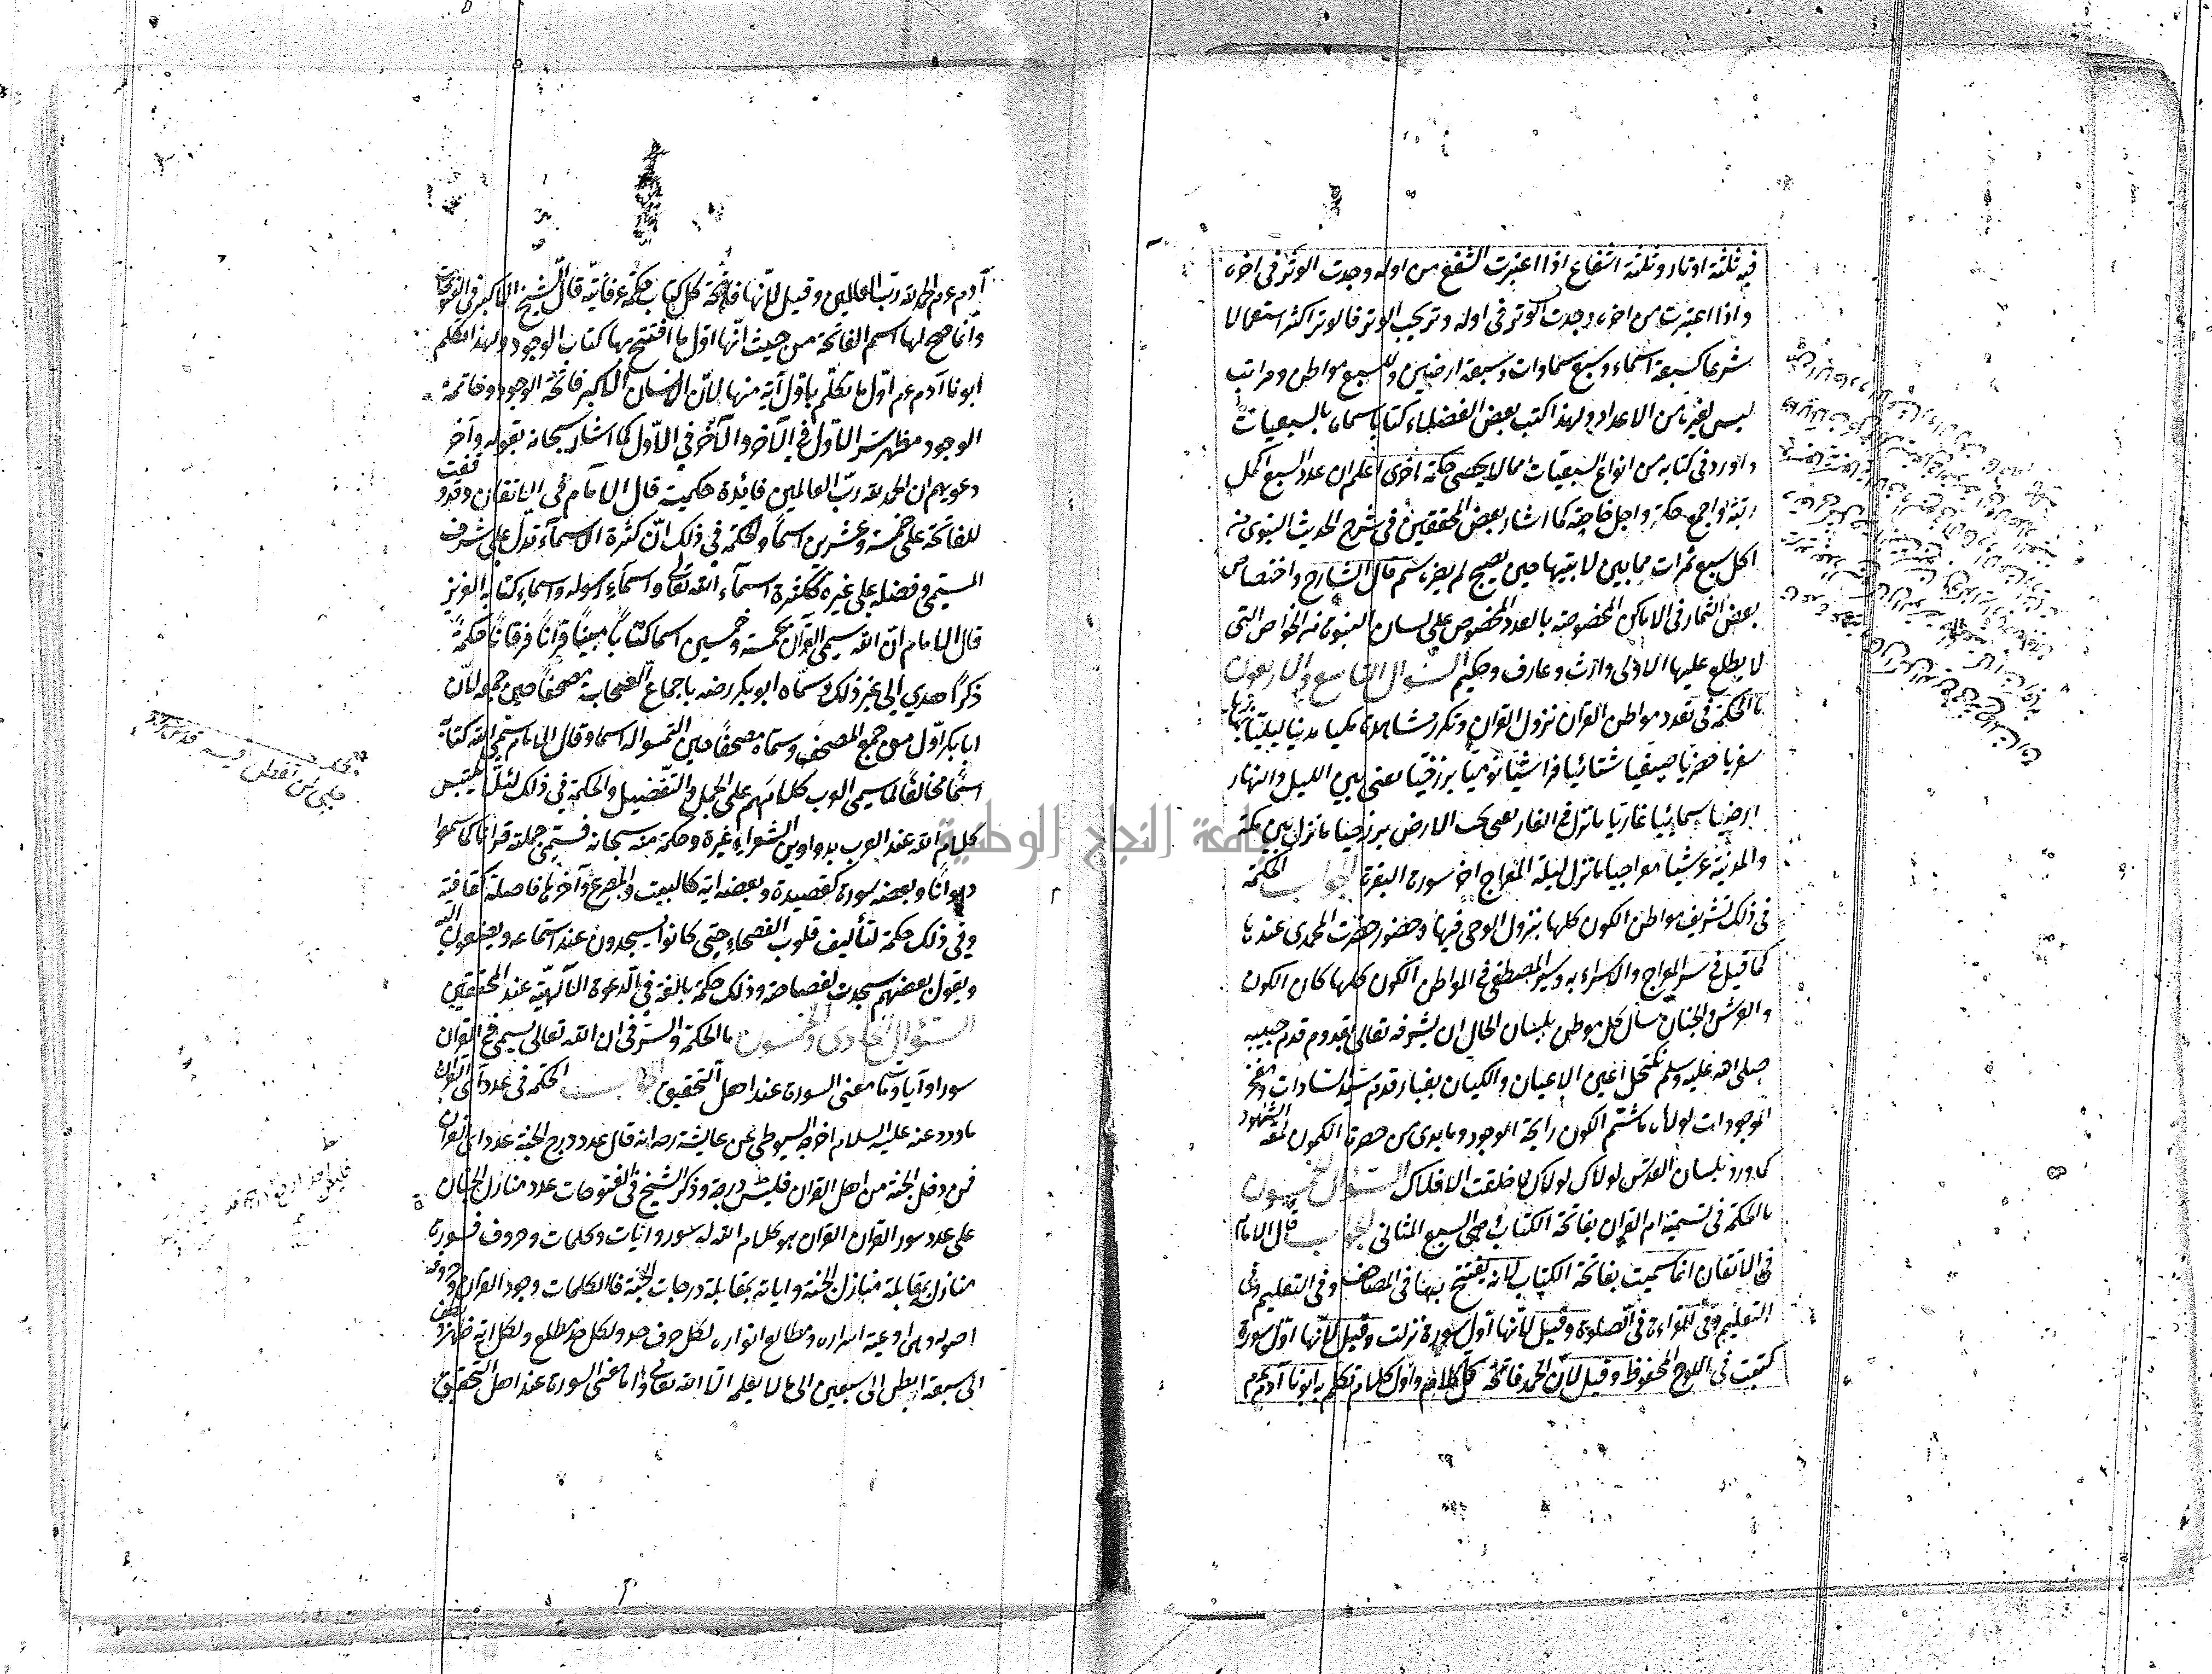 فيه ثلثة اوتار وثلثة اشفاع اذا اعتبرت الشفع من اوله وجدت الوتر في اخره
واذا اعتبرت من اخره وجدت الوتر في اوله وتر يحب الوتر فالوتر اكثر استعمالا
شرعا كسبعة اسماء وسبع سماوات وسبعة ارضين وللسبع مواطن ومراتب
ليس لغيره من الاعداد ولهذا كتب بعض الفضلاء كتابا سماه بالسبعيات
واورد في كتابه من انواع السبعيات مما لا يحصى حكمة اخرى اعلم ان عدد السبع اكمل
رتبة واجمع حكمة واجل خاصة كما اشار بعض المحققين في شرح الحديث النبوي من
اكل سبع تمرات مما بين لابتيها حين يصبح لم يضره سم قال الشارح واختصاص
بعض الثمار في الاماكن المخصوصة بالعدد المخصوص على لسان النبوة من الخواص التي
لا يطلع عليها الا ولى وارث وعارف وحكيم السؤال التاسع والاربعون
ما الحكمة في تعدد مواطن القرآن نزول القرآن وتكرر مشاهده مكيا مدنيا ليليا نهاريا
سفريا حضريا صيفيا شتائيا فراشيا نوميا برزخيا يعنى بين الليل والنهار
ارضيا سمائيا غاريا ما نزل في الغار يعنى تحت الارض برزخيا ما نزل بين مكة
والمدينة عرشيا معراجيا ما نزل ليلة المعراج اخر سورة البقرة الجواب الحكمة
في ذلك تشريف مواطن الكون كلها بنزول الوحى فيها وحضور حضرت المحمدى عندها
كما قيل في سر المعراج والاسراء به وسير المصطفى في المواطن الكون كلها كان الكون
والعرش والجنان سأل كل موطن بلسان الحال ان يشرفه تعالى بقدوم قدم حبيبه
صلى الله عليه وسلم تكتحل اعين الاعيان والكيان بغبار قدم سيد السادات ومفخر
الموجودات لولاه ما شتم الكون رايحة الوجود وما بدى من حضرة الكمون لمعة الشهود
كما ورد بلسان القدس لولاك لولاك لما خلقت الافلاك السؤال الخمسون
ما الحكمة في تسمية ام القرآن بفاتحة الكتاب وهى السبع المثانى الجواب قال الامام
في الاتقان انما سميت بفاتحة الكتاب لانه يفتتح بها في المصاحف وفي التعليم وفي
التعليم وفي القراءة في الصلوة وقيل لانها اول سورة نزلت وقيل لانها اول سورة
كتبت في اللوح المحفوظ وقيل لان الحمد فاتحة كل كلام واول كلام تكلم به ابونا آدم عم
آدم عم الحمد لله رب العالمين وقيل لانها فاتحة كل كتاب حكمة عرفانية قال الشيخ الاكبر في الفتوحات
وانما صح لها اسم الفاتحة من حيث انها اول ما افتتح بها كتاب الوجود ولهذا تكلم
ابونا آدم عم اول ما تكلم باول آية منها لان الانسان الاكبر فاتحة الوجود وخاتمة
الوجود مظهر سر الاول في الآخر والآخر في الاول كما اشار سبحانه بقوله وآخر
دعويهم ان الحمد لله رب العالمين فائدة حكمية قال الامام في الاتقان وقد وقفت
للفاتحة على خمسة وعشرين اسما والحكمة في ذلك ان كثرة الاسماء تدل على شرف
المسمى وفضله على غيره ككثرة اسماء الله تعالى واسماء رسوله واسماء كتابه العزيز
قال الامام ان الله سمى القرآن بخمسة وخمسين اسما كتابا مبينا قرانا فرقانا حكمة
ذكرا هدى الى غير ذلك وسماه ابو بكر رضه باجماع الصحابة مصحفا حين جمعه لان
ابا بكر اول من جمع المصحف وسماه مصحفا حين التمسوا له اسما وقال الامام سمى الله كتابه
اسما مخالفا لما سمى العرب كلامهم على الجمل والتفضيل والحكمة في ذلك لئلا يلتبس
كلام الله عند العرب بدواوين الشعراء غيرة وحكمة منه سبحانه فسمى جملته قرانا كما سموا
ديوانا وبعضه سورة كقصيدة وبعضه اية كالبيت والمصرع وآخرها فاصلة كقافية
وفي ذلك حكمة لتأليف قلوب الفصحاء حتى كانوا يسجدون عند استماعه ويضعون اليه
ويقول بعضهم سجدت لفصاحته وذلك حكمة بالغة في الدعوة الالهية عند المحققين
السؤال الحادى والخمسون ما الحكمة والسر في ان الله تعالى يسمى في القرآن
سورا وآيا وما معنى السورة عند اهل التحقيق الجواب الحكمة في عدد آى القرآن
ما ورد عنه عليه السلام اخرجه السيوطى عن عايشة رضه انه قال عدد درج الجنة عدد اى القرآن
فمن دخل الجنة من اهل القرآن فليس درجة وذكر الشيخ في الفتوحات عدد منازل الجنان
على عدد سور القرآن القرآن هو كلام الله له سور وايات وكلمات وحروف فسوره
منازل بمقابلة منازل الجنة واياته بمقابلة درجات الجنة فالكلمات وجود القرآن وحروفه
اصوله وهى اوعية اسراره ومطالع انواره لكل حرف حد ولكل حد مطلع ولكل اية ظهر وبطن
الى سبعة ابطن الى سبعين الى ما لا يعلمه الا الله تعالى واما معنى السورة عند اهل التحقيق
جامعة النجاح الوطنية